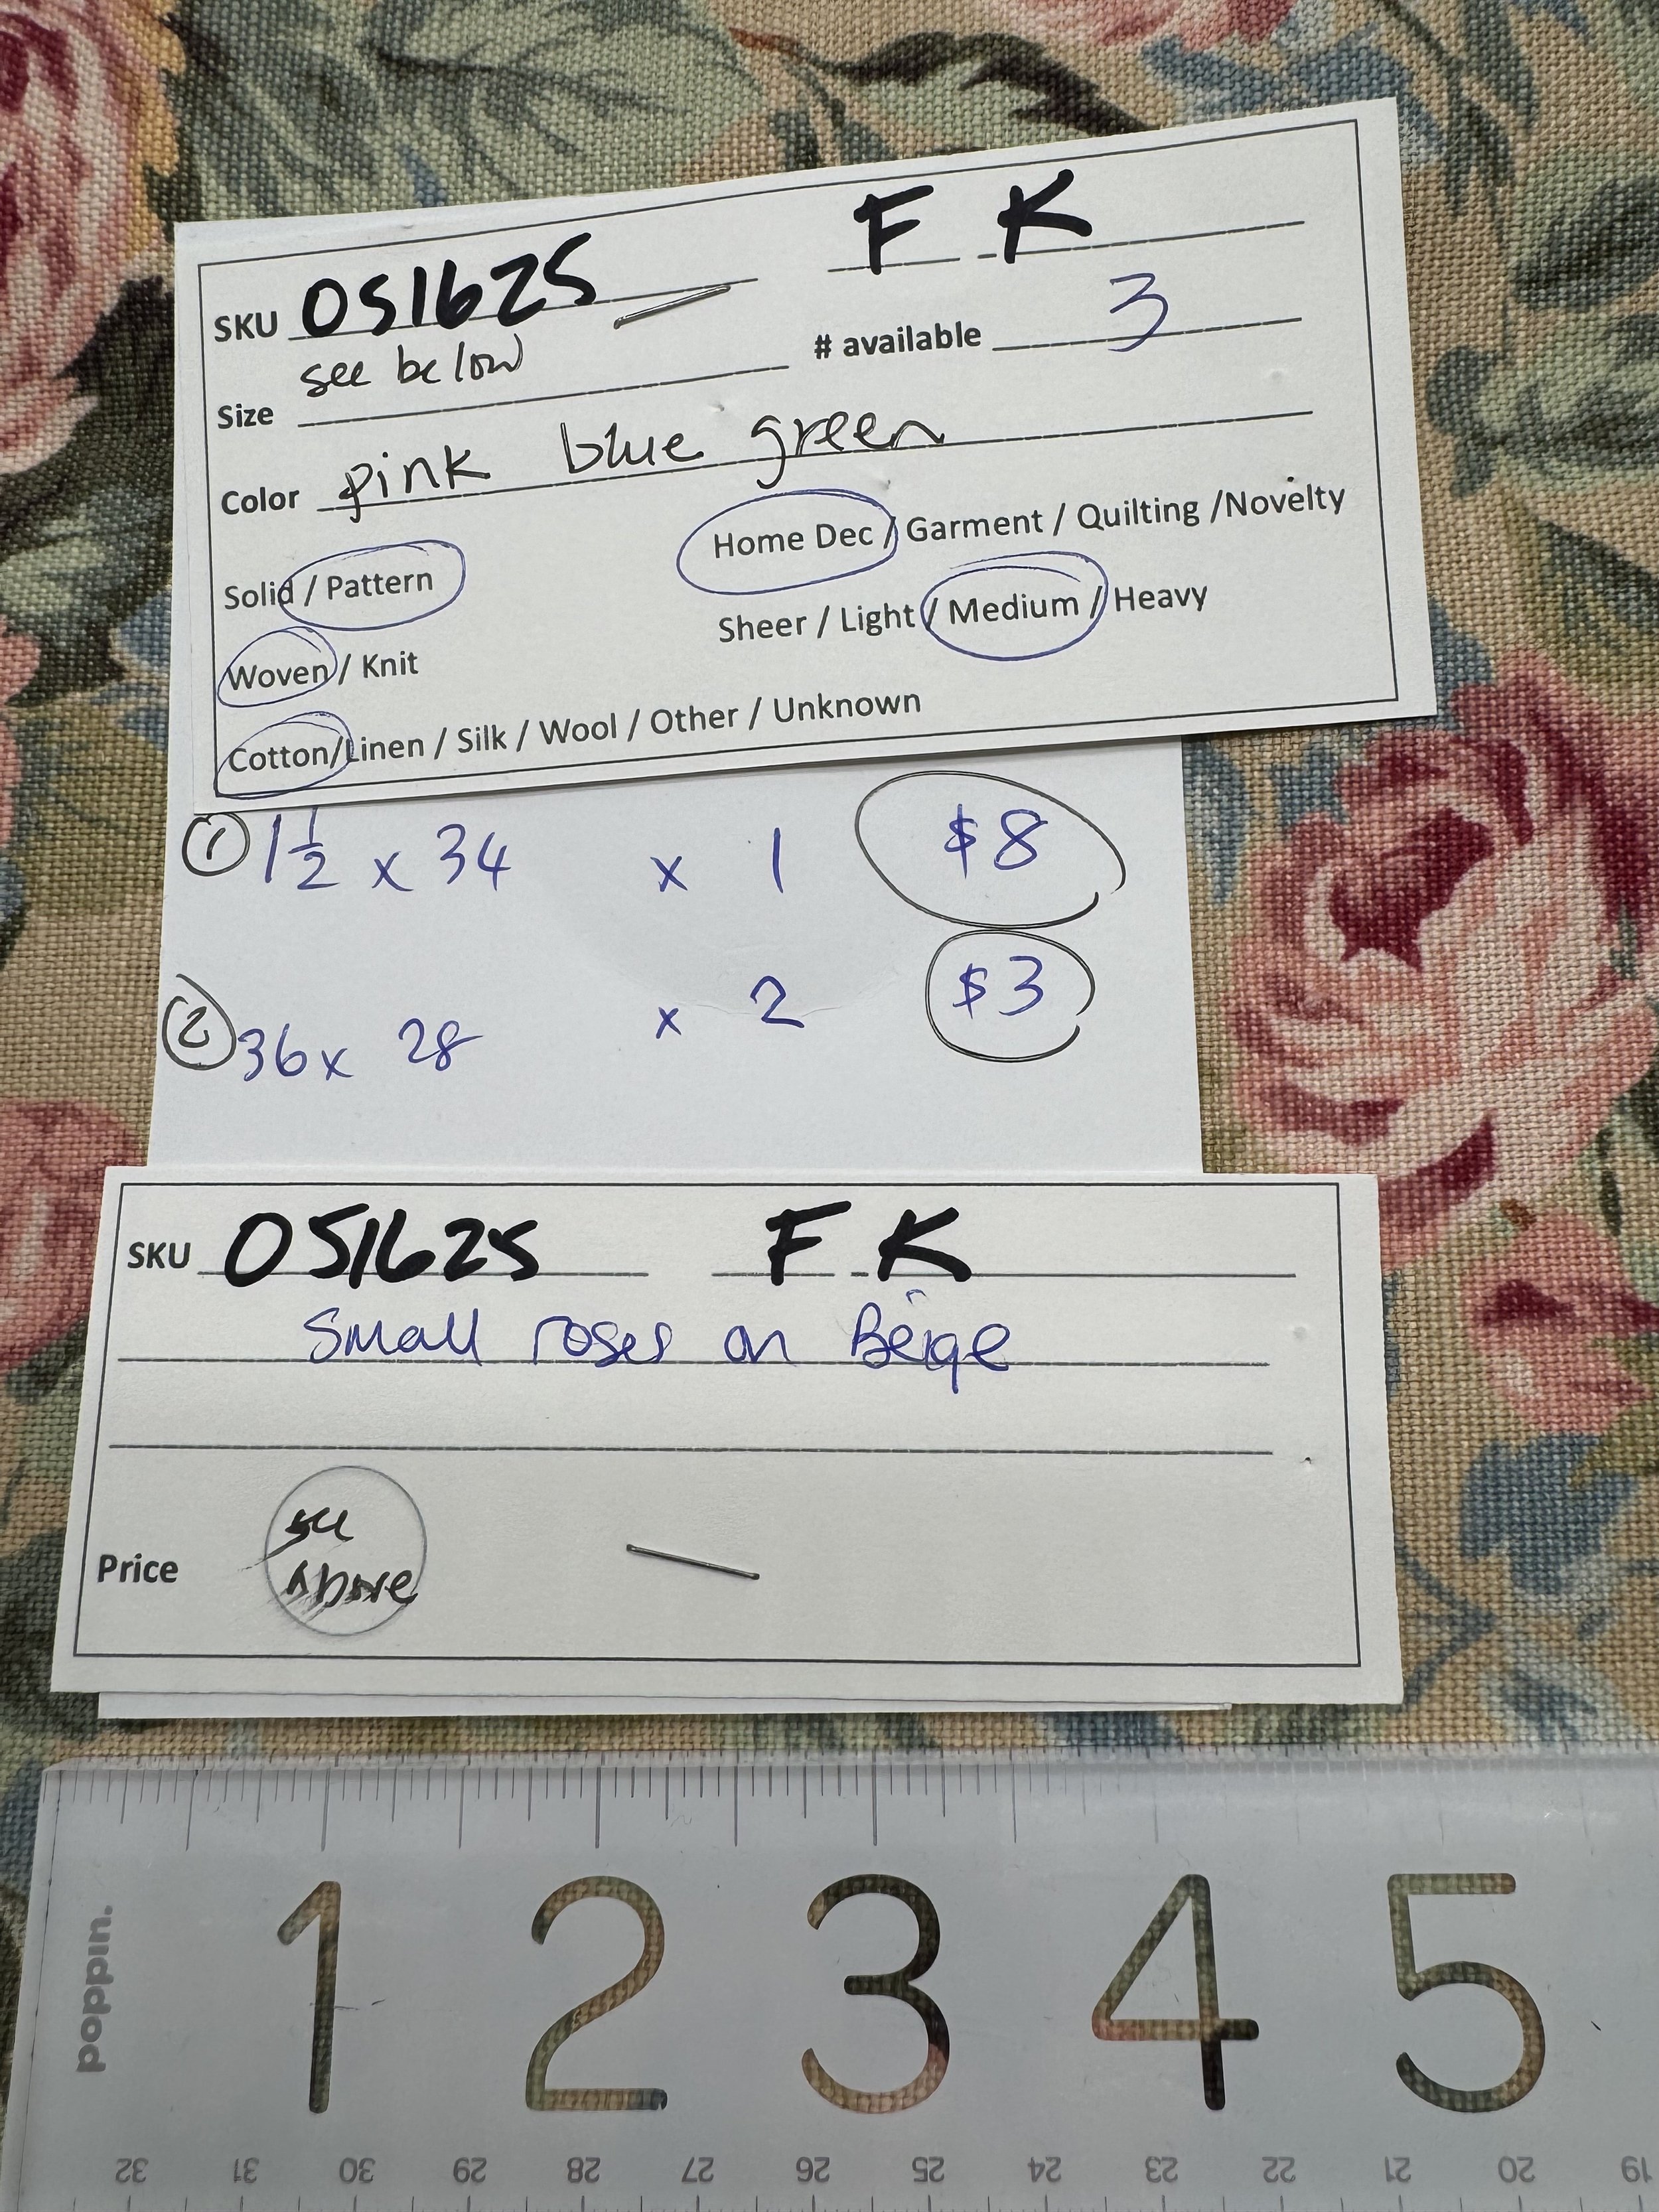 SKU 051625 F K
Size see below # available 3
Color pink blue green
Solid / Pattern Home Dec / Garment / Quilting /Novelty
Woven / Knit Sheer / Light / Medium / Heavy
Cotton/Linen / Silk / Wool / Other / Unknown
① 1½ x 34 x 1 $8
② 36 x 28 x 2 $3
SKU 051625 F K
Small roses on Beige
Price see Above
poppin.
1 2 3 4 5
32 31 30 29 28 27 26 25 24 23 22 21 20 19